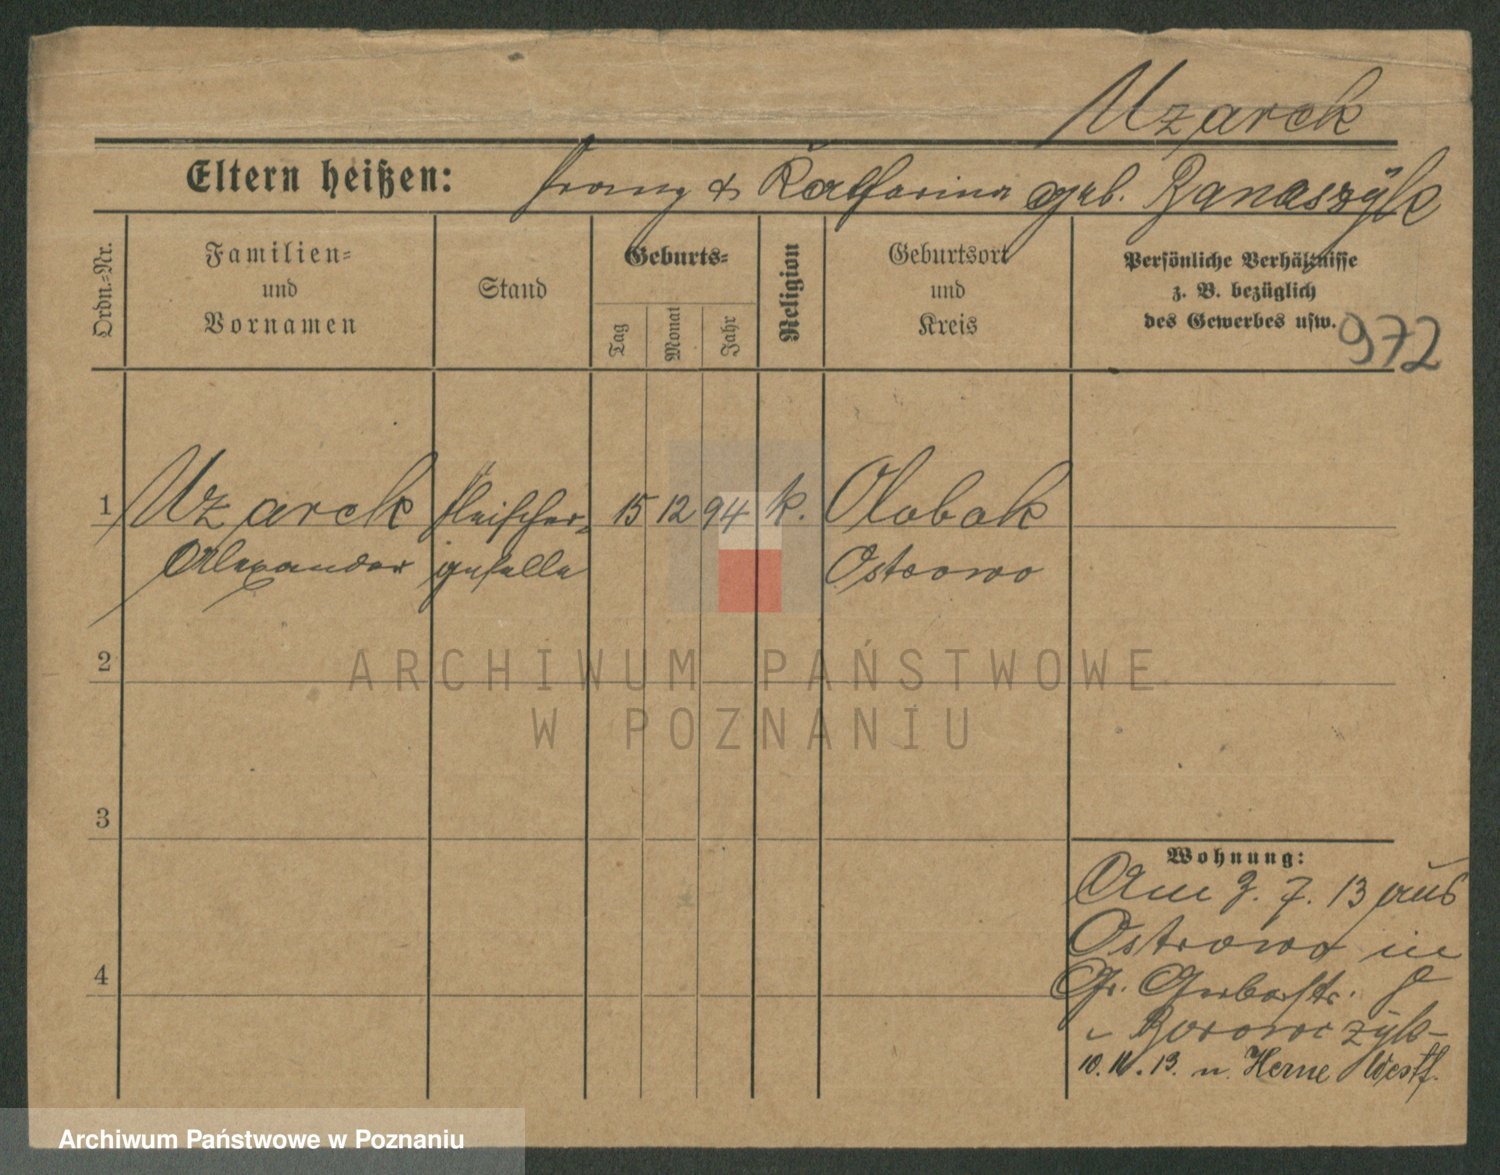 Uzarek
Eltern heißen: Franz & Katharina geb. Banaszÿk
Ordn.-Nr.
Familien-
und
Vornamen
Stand
Geburts-
Tag
Monat
Jahr
Religion
Geburtsort
und
Kreis
Persönliche Verhältnisse
z. B. bezüglich
des Gewerbes usw.
972
1 Uzarek Fleischer- 15 12 94 k. Olobok
Alexander geselle Ostrowo
2
ARCHIWUM PAŃSTWOWE
W POZNANIU
3
Wohnung:
Am 3. 7. 13 aus
Ostrowo in
4
Gr. Gerberstr. 8
Borowczÿk
10. 11. 13. n. Herne Westf.
Archiwum Państwowe w Poznaniu